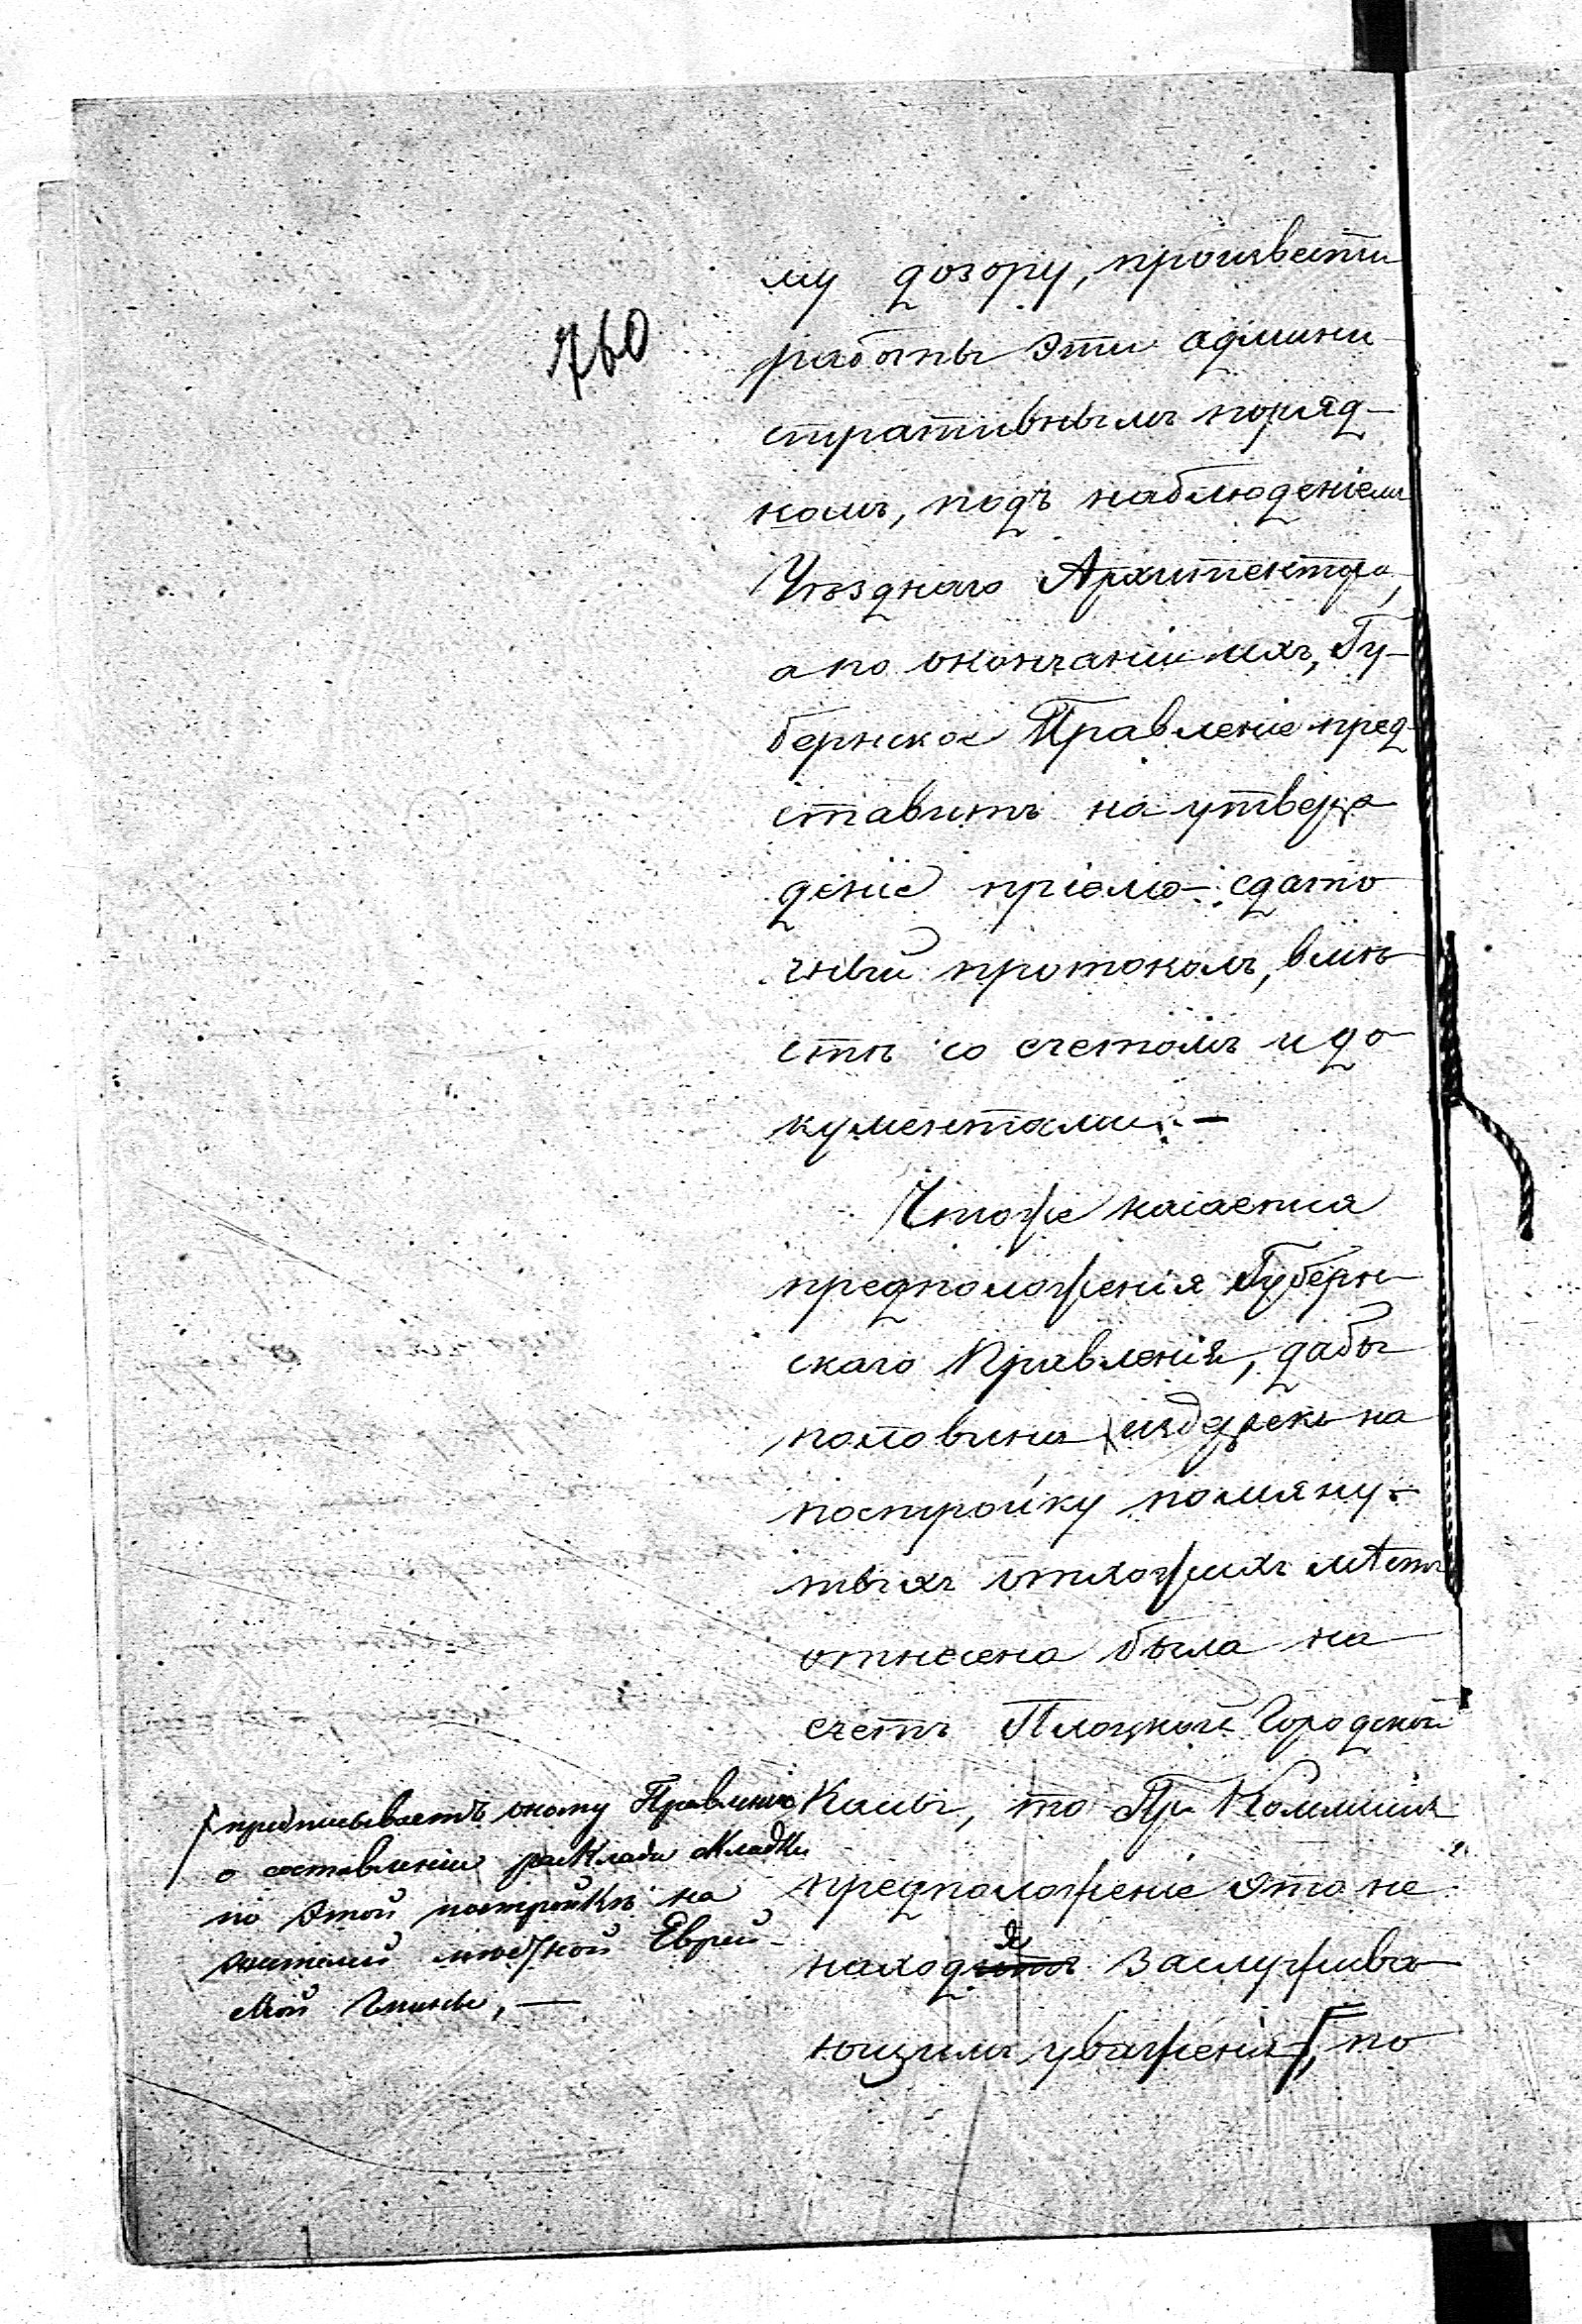 760
му дозору, произвести
работы эти админи
стративнымъ поряд-
комъ, подъ наблюденіемъ
Уѣзднаго Архитектора,
а по окончаніи ихъ, Гу-
бернское Правленіе пред-
ставитъ на утверж
деніе пріемо-сдато
чный протоколъ, вмѣ
стѣ со счетомъ и до
кументами.—
Чтоже касается
предположенія Губерн-
скаго Правленія, дабы
половина издержекъ на
постройку помяну-
тыхъ отхожихъ мѣстъ
отнесена была на
счетъ Плоцкой Городской
Кассы, то Пр. Коммисія
предположеніе это не
находитъ я заслужива
ющимъ уваженія, по
предписываетъ оному Правленію
о составленіи раскладки
по этой постройкѣ на
жителей Еврей-
ской Гмины,—